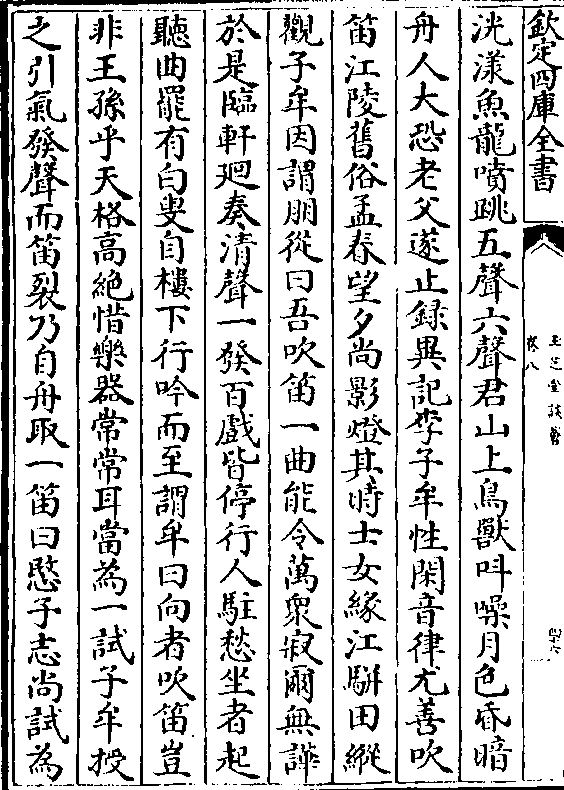 欽定四庫全書
玉芝堂談薈
卷八
四十六
洸漾魚龍噴跳五聲六聲君山上鳥獸呌噪月色昏暗
舟人大恐老父遂止録異記李子牟性閑音律尤善吹
笛江陵舊俗孟春望夕尚影燈其時士女緣江駢田縱
觀子牟因謂朋從曰吾吹笛一曲能令萬衆寂爾無譁
於是臨軒廻奏清聲一發百戲皆停行人駐愁坐者起
聽曲罷有白叟自樓下行吟而至謂牟曰向者吹笛豈
非王孫乎天格高絶惜樂器常常耳當為一試子牟授
之引氣發聲而笛裂乃自舟取一笛曰愍子志尚試為